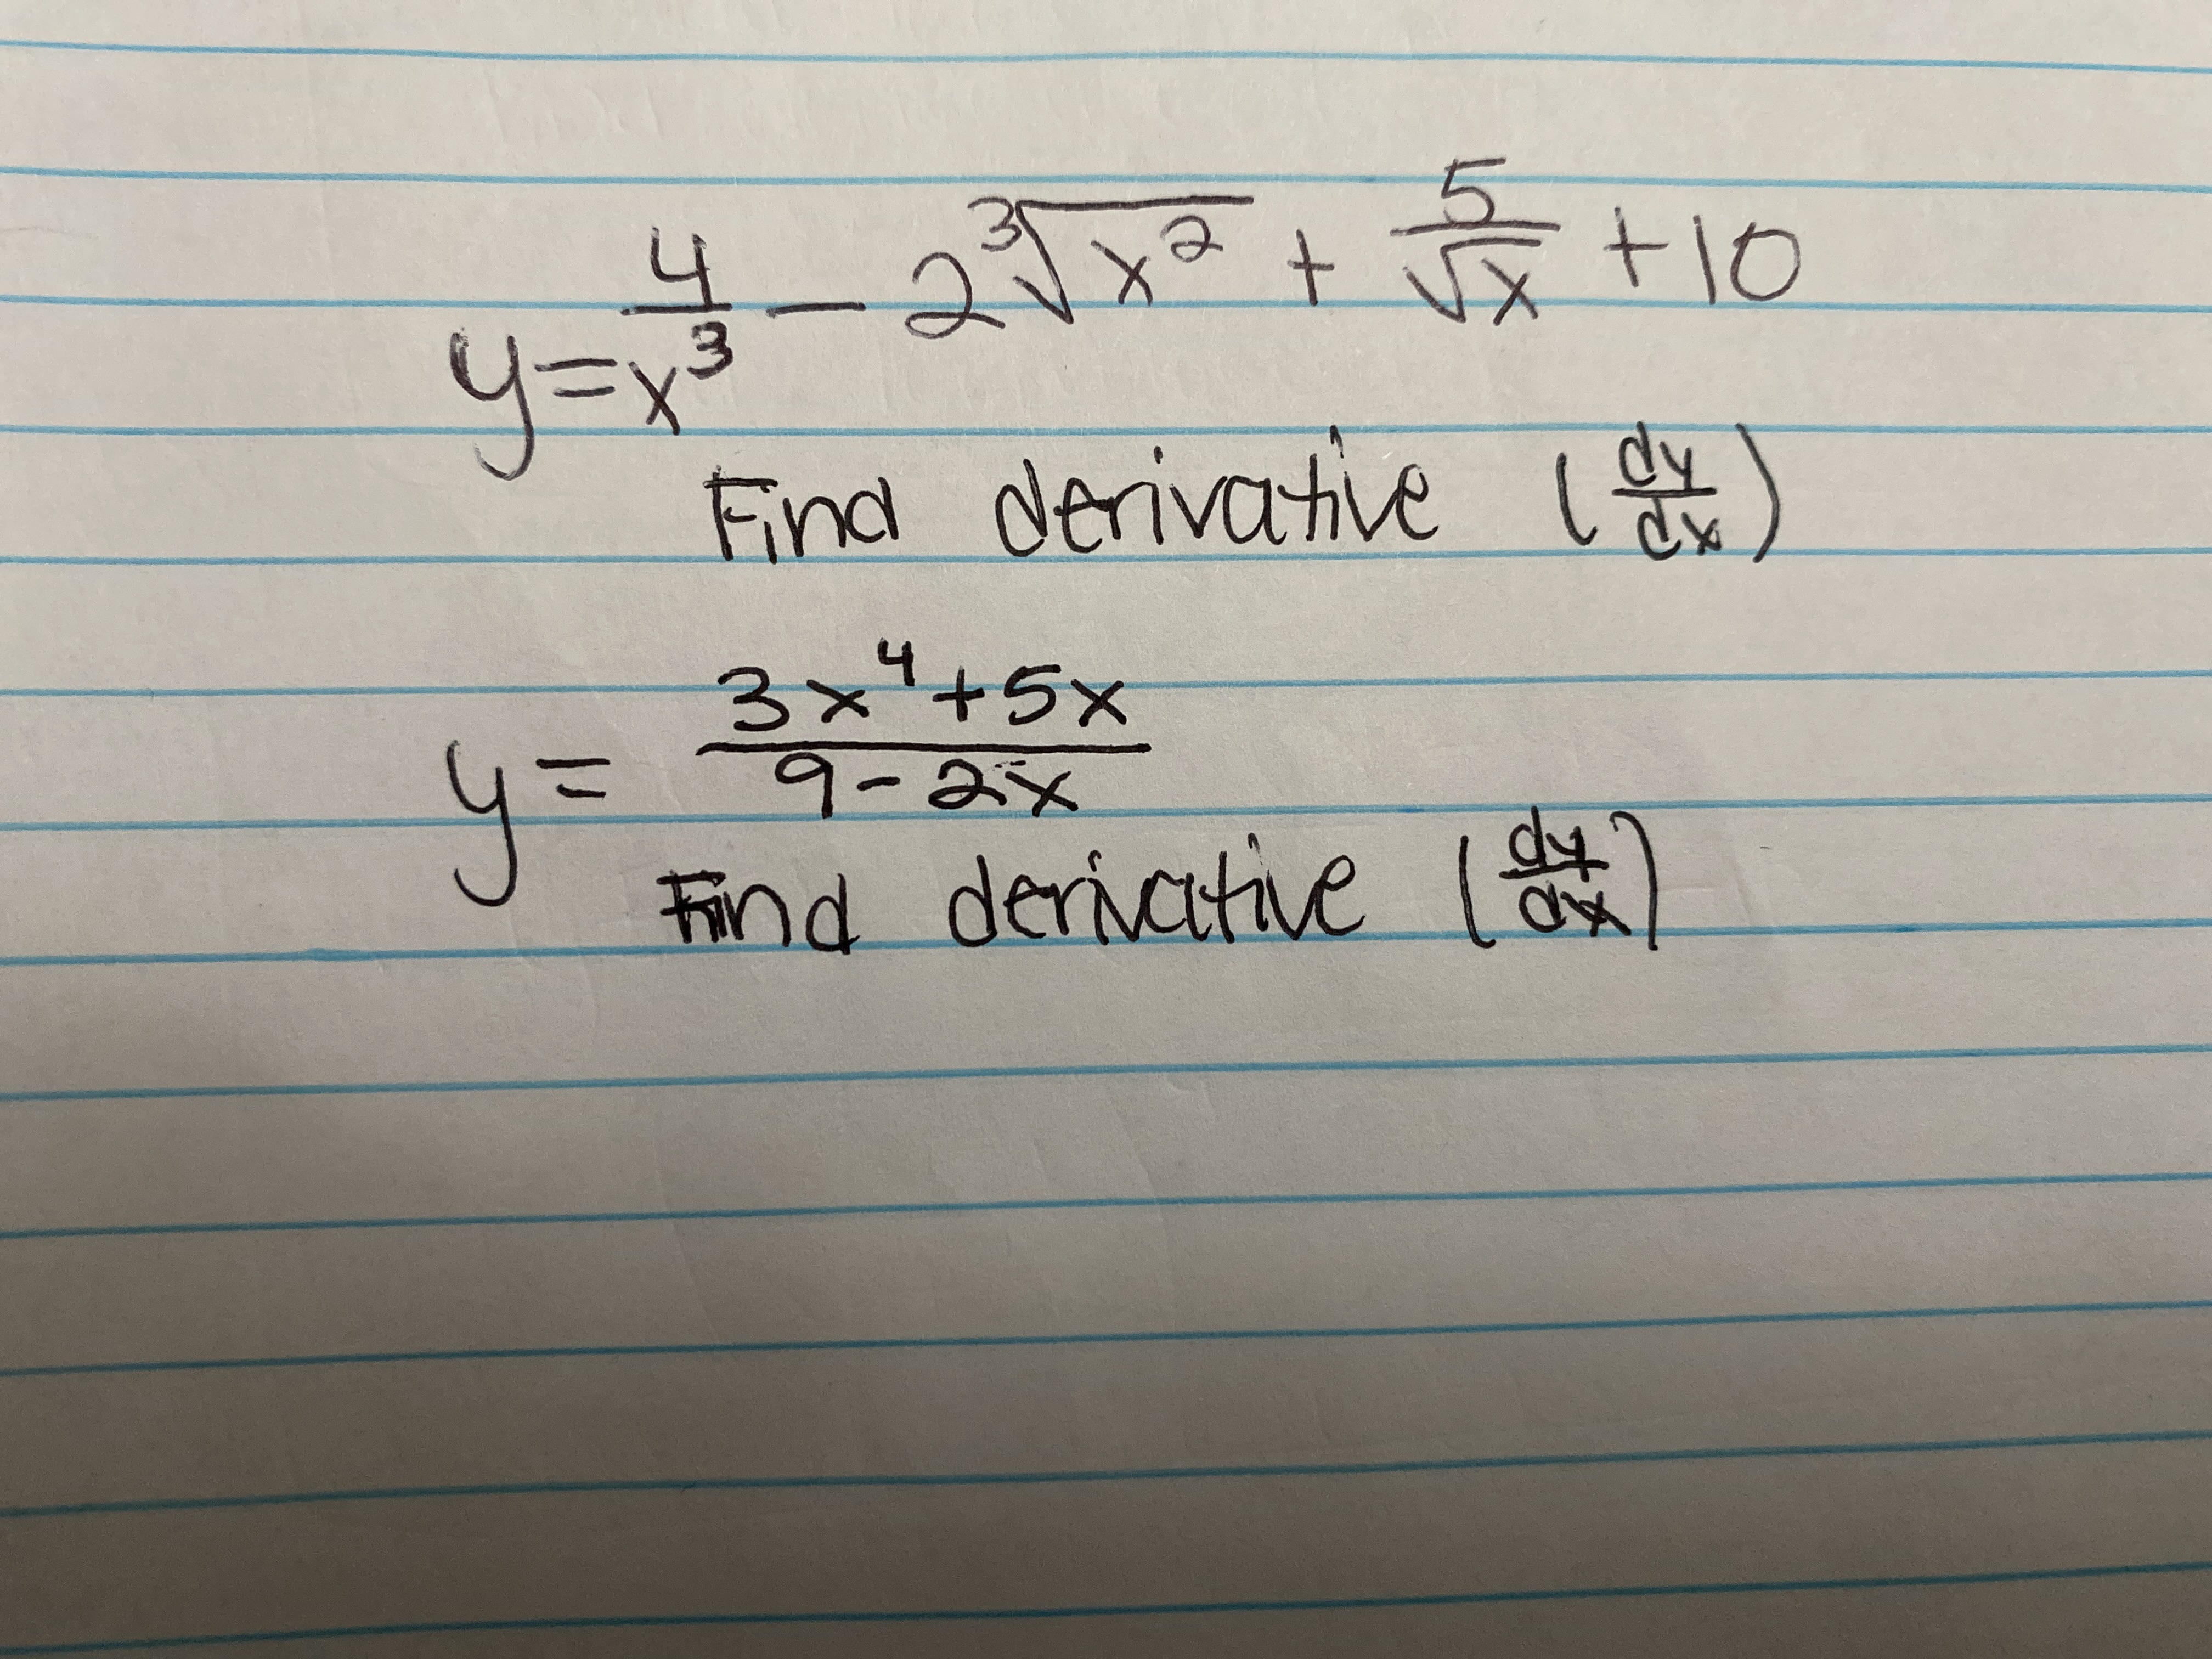 y = 4/x³ - 2∛x² + 5/√x + 10
Find derivative (dy/dx)
y = (3x⁴ + 5x)/(9 - 2x)
Find derivative (dy/dx)